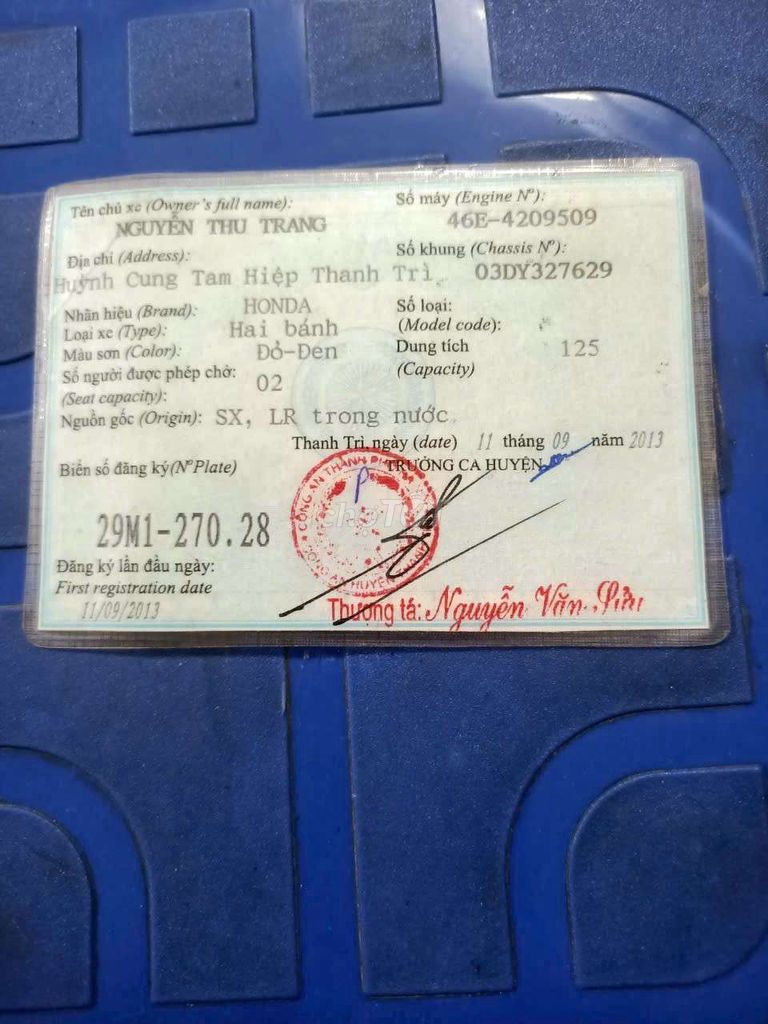 Tên chủ xe (Owner's full name):
NGUYỄN THU TRANG
Địa chỉ (Address):
Huỳnh Cung Tam Hiệp Thanh Trì
Nhãn hiệu (Brand): HONDA
Loại xe (Type): Hai bánh
Màu sơn (Color): Đỏ-Đen
Số người được phép chở: 02
(Seat capacity):
Nguồn gốc (Origin): SX, LR trong nước
Số máy (Engine Nº):
46E-4209509
Số khung (Chassis Nº):
03DY327629
Số loại:
(Model code):
Dung tích 125
(Capacity)
Thanh Trì, ngày (date) 11 tháng 09 năm 2013
TRƯỞNG CA HUYỆN
Biển số đăng ký(NºPlate)
29M1-270.28
Đăng ký lần đầu ngày:
First registration date
11/09/2013
CÔNG AN THÀNH PHỐ
CÔNG AN HUYỆN THANH
P
Chợ Tốt
Thượng tá: Nguyễn Văn Sửu